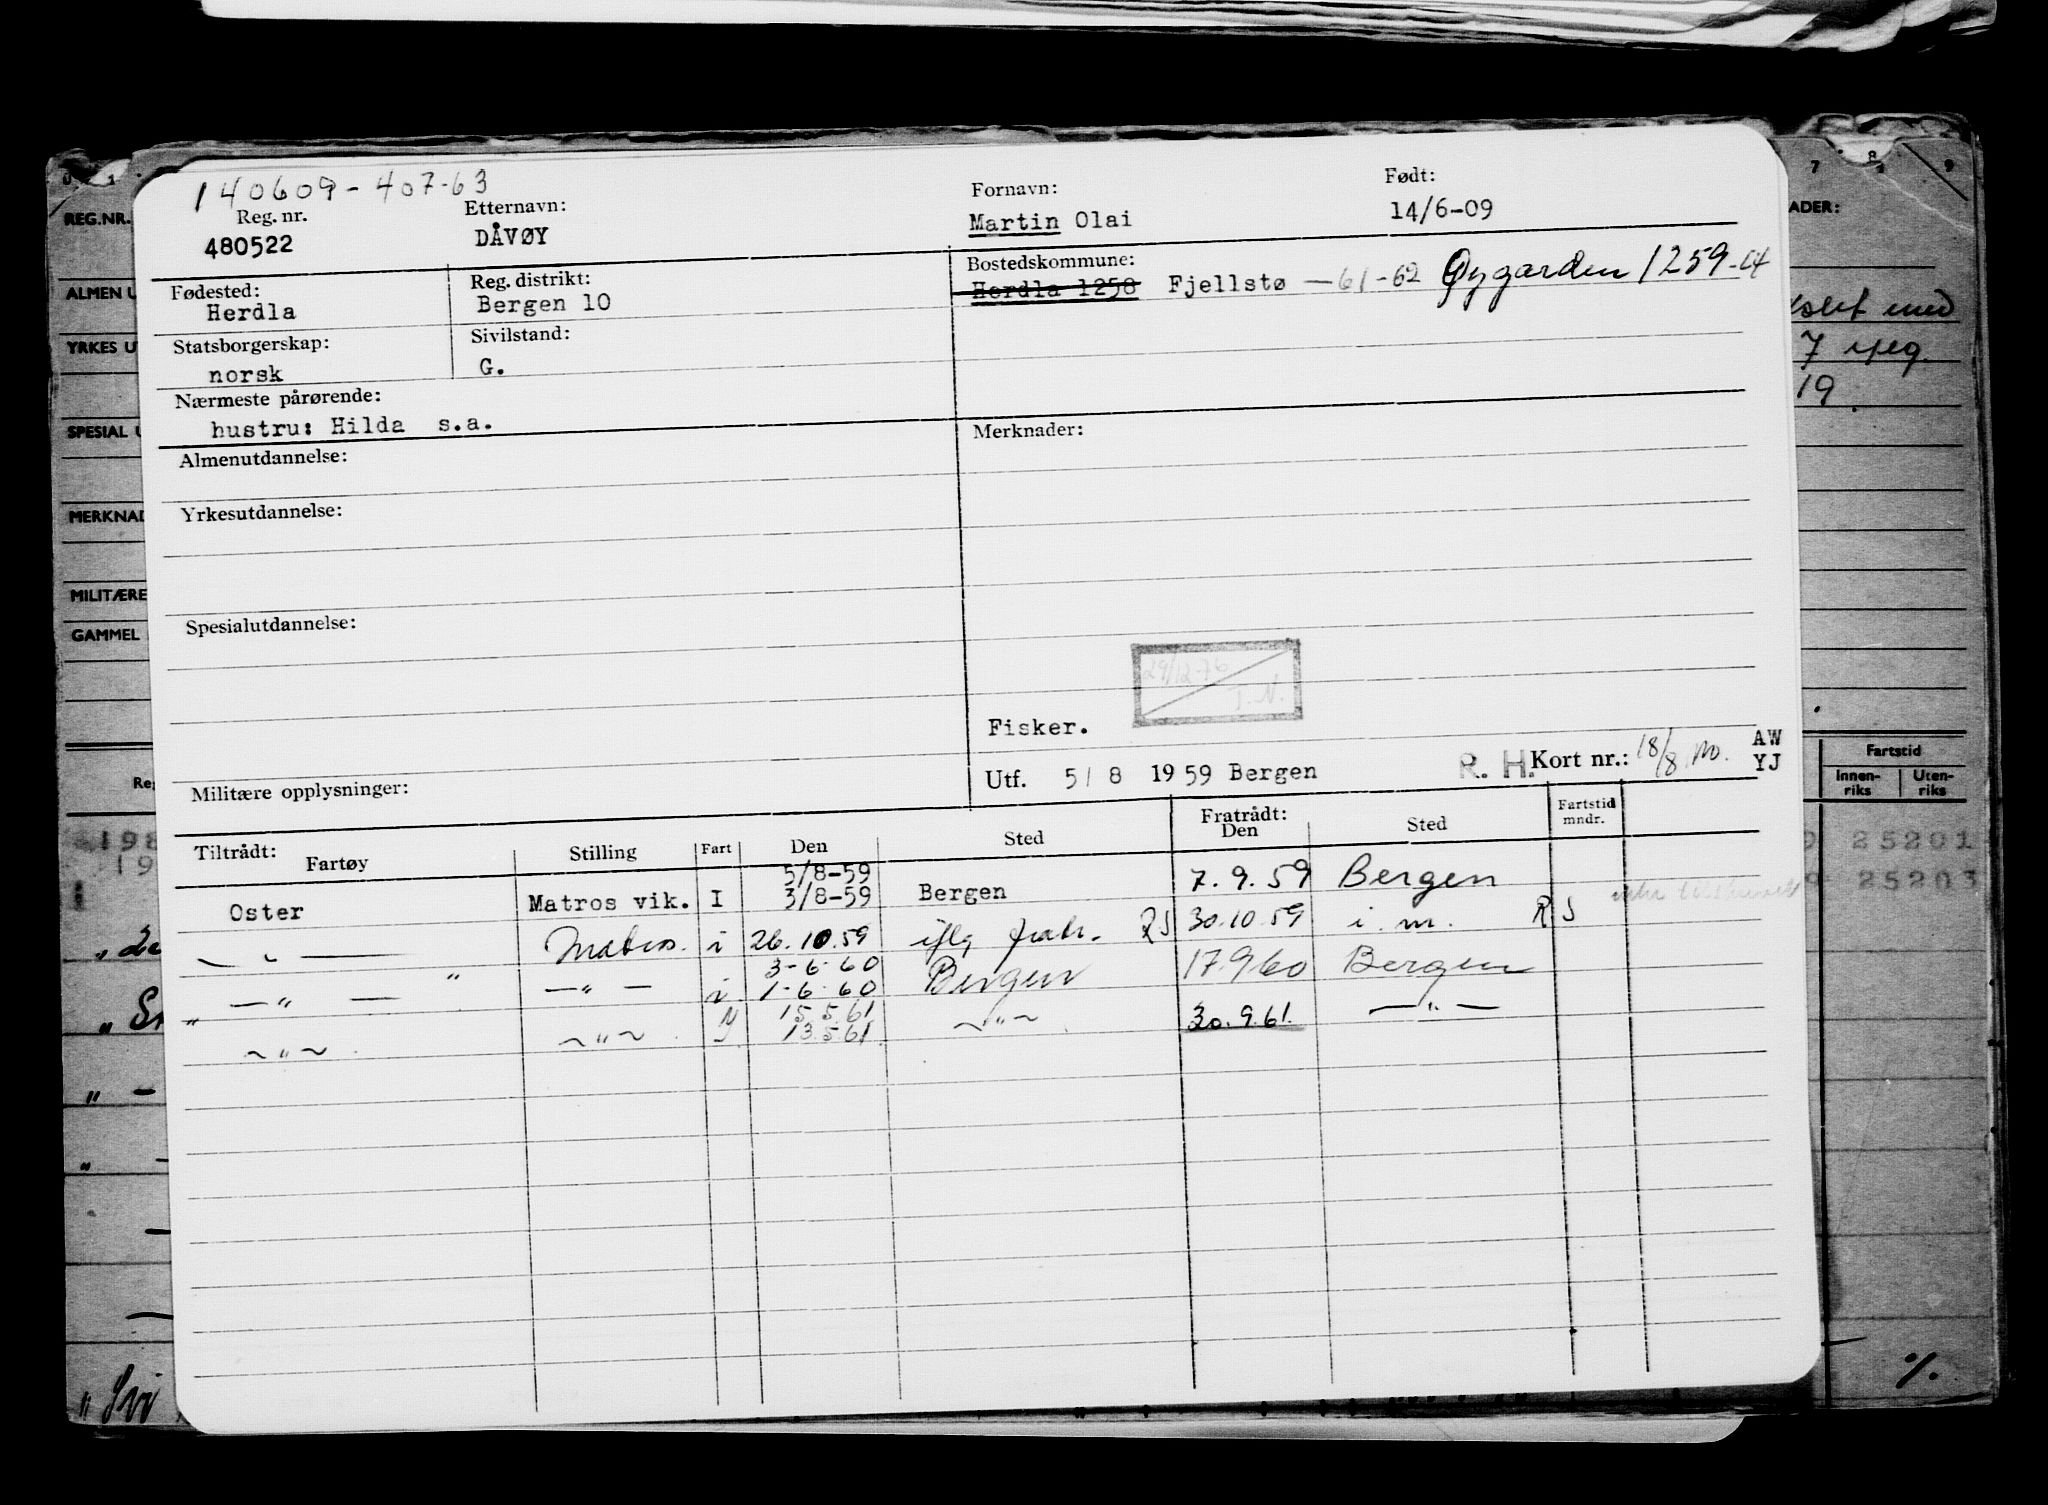 140609-407-63
Reg. nr. Etternavn: Fornavn: Født:
480522 DÅVØY Martin Olai 14/6-09
Fødested: Reg. distrikt: Bostedskommune:
Herdla Bergen 10 Herdla 1258 Fjellstø —61-62 Øygarden 1259-64
Statsborgerskap: Sivilstand:
norsk G.
Nærmeste pårørende:
hustru: Hilda s.a.
Almenutdannelse: Merknader:
Yrkesutdannelse:
Spesialutdannelse:
29/12-76
T.N.
Fisker.
Militære opplysninger: Utf. 5/8 1959 Bergen R. H. Kort nr.: 18/8 AW
YJ
Tiltrådt: Fratrådt:
Fartøy Stilling Fart Den Sted Den Sted Fartstid mndr.
5/8-59
Oster Matros vik. I 3/8-59 Bergen 7.9.59 Bergen
— " — Matros. i 26.10.59 iflg fratr. RS 30.10.59 i. m. RS
3-6-60
— " — " — " — i 1-6-60 Bergen 17.9.60 Bergen
15.5.61
" ~ " ~ ~ " ~ 13.5.61. ~ " ~ 30.9.61. — " —
0 1 7 8 9
REG.NR.
ADER:
ALMEN U
YRKES U
7
19
SPESIAL U
MERKNAD
MILITÆRE
GAMMEL
Reg
Fartstid
Innen-riks Uten-riks
198 25201
19 25203
" —
"